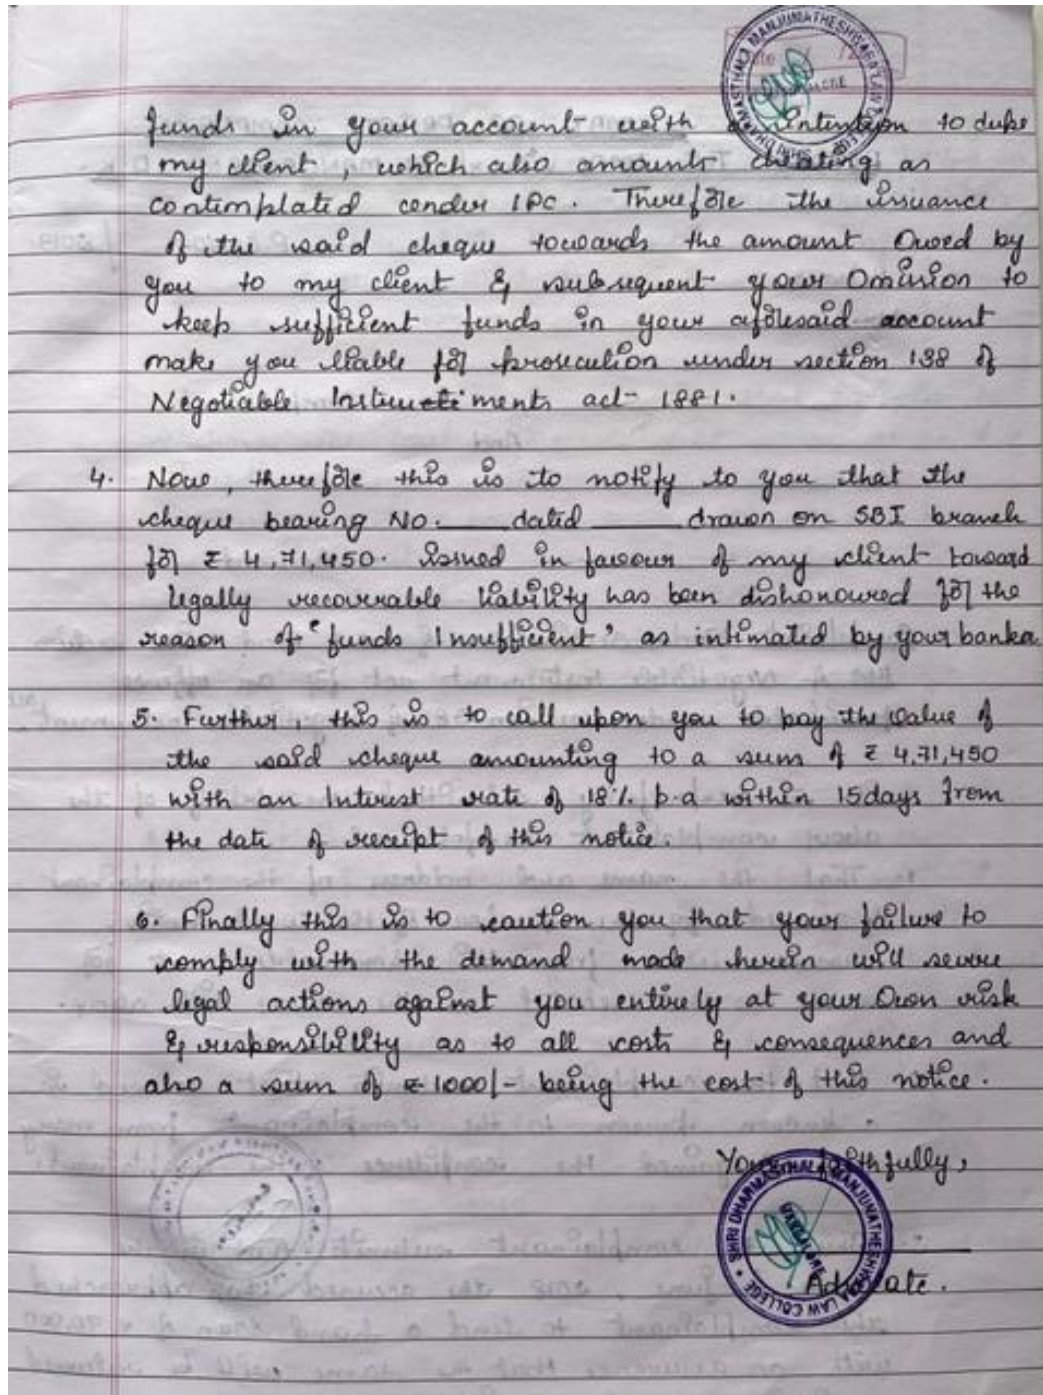 funds in your account with a intention to dupe
my client, which also amounts cheating as
contemplated under IPC. Therefore the issuance
of the said cheque towards the amount Owed by
you to my client & subsequent your Omission to
keep sufficient funds in your aforesaid account
make you liable for prosecution under section 138 of
Negotiable Instruments act- 1881.
4. Now, therefore this is to notify to you that the
cheque bearing No. ____ dated ____ drawn on SBI branch
for ₹ 4,71,450. issued in favour of my client toward
legally recourrable liability has been dishonoured for the
reason of "funds Insufficient' as intimated by your banka
5. Further, this is to call upon you to pay the value of
the said cheque amounting to a sum of ₹ 4,71,450
with an Interest rate of 18% p.a within 15days from
the date of receipt of this notice.
6. Finally this is to caution you that your failure to
comply with the demand made herein will severe
legal actions against you entirely at your Own risk
& responsibility as to all costs & consequences and
also a sum of ₹ 1000/- being the cost of this notice.
Yours faithfully,
SHRI DHARMASTHALA MANJUNATHESHWARA LAW COLLEGE
MANGALORE
Advocate.